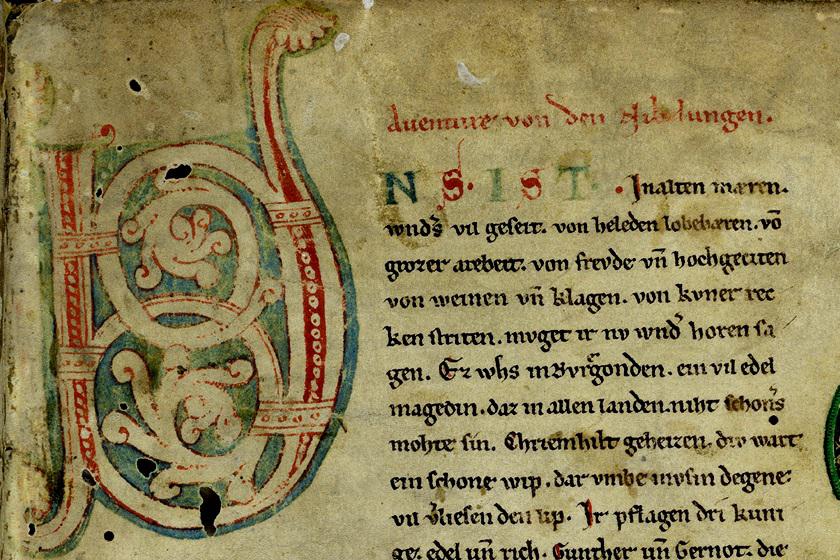 Auenture von den Nibelungen.
VNS. IST. Inalten mæren.
wnds vil geseit. von heleden lobebæren. vō
grozer arebeit. von frevde vn̄ hochgeciten
von weinen vn̄ klagen. von kvner rec
ken striten. mvget ir nv wnd᾽ horen sa
gen. Ez whs inBvrgonden. ein vil edel
magedin. daz in allen landen. niht schoners
mohte sin. Chriemhilt geheizen. div wart
ein schone wip. dar vmbe mvsin degene
vil v᾽liesen den lip. Ir pflagen dri kuni
ge. edel vn̄ rich. Gunther vn̄ Gernot. die